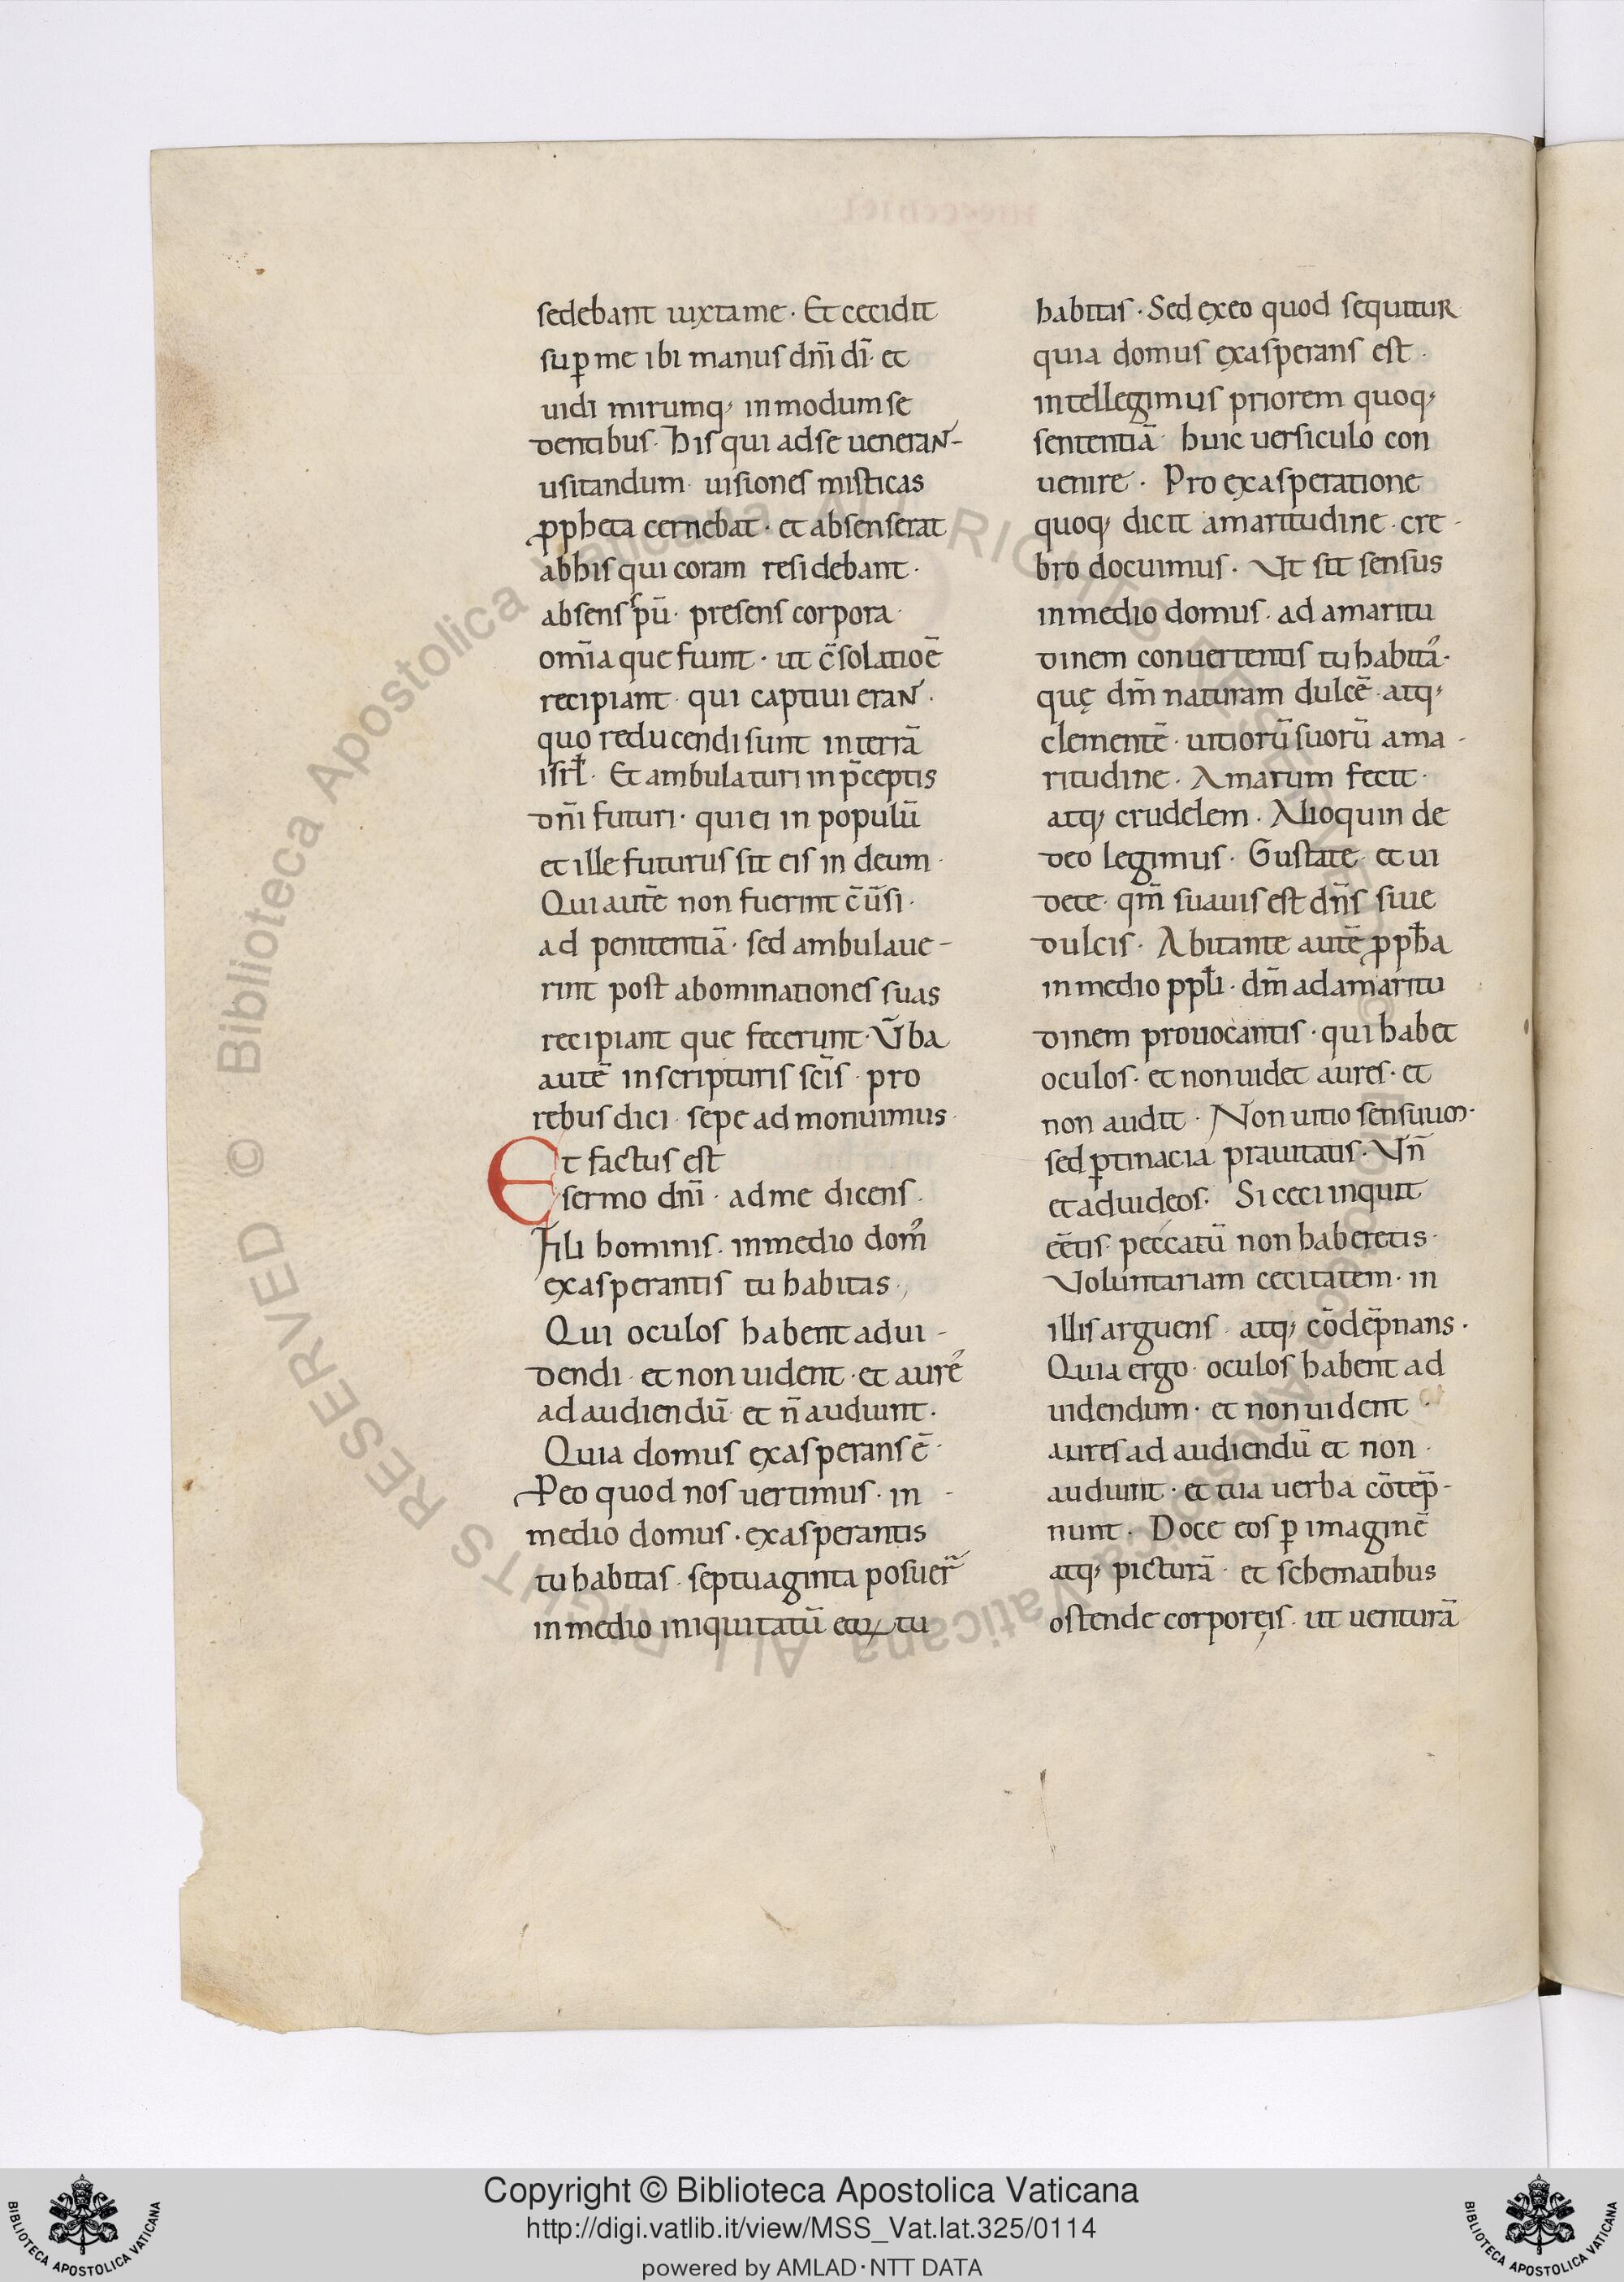 sedebant iuxta me · Et cecidit
sup̱ me ibi manus dn̄i dī · et
uidi mirumq; in modum se
dentibus · his qui ad se ueneraN-
usitandum · uisiones misticas
ꝓpheta cernebat · et absens erat
ab his qui coram residebant ·
absens sp̄u · presens corpora ·
om̄ia que fiunt · ut c̄solatioē
recipiant · qui captiui eraN ·
quo reducendi sunt in terrā
isrł · Et ambulaturi in p̄ceptis
dn̄i futuri · qui ei in populū
et ille futurus sit eis in deum ·
Qui autē non fuerint c̄ūsi ·
ad penitentiā · sed ambulaue-
rint post abominationes suas
recipiant que fecerunt · Ūba
autē in scripturis sc̄is · pro
rebus dici · sepe admonuimus ·
Et factus est
sermo dn̄i · ad me dicens ·
Fili hominis · in medio dom᾿
exasperantis tu habitas ·
Qui oculos habent ad ui-
dendi · et non uident · et aure᾿
ad audiendū et n̄ audiunt ·
Quia domus exasperans ē ·
Ꝓ eo quod nos uertimus · in -
medio domus · exasperantis
tu habitas · septuaginta posuer̄
in medio iniquitatū eoꝝ tu
habitas · Sed ex eo quod sequituR
quia domus exasperans est ·
intellegimus priorem quoq;
sententiā huic uersiculo con
uenire · Pro exasperatione
quoq; dicit amaritudine · cre-
bro docuimus · Ut sit sensus
in medio domus · ad amaritu
dinem conuertentis tu habita᾿ ·
quę dm̄ naturam dulcē · atq;
clementē · uitiorū suorū ama-
ritudine · Amarum fecit ·
atq; crudelem · Alioquin de
deo legimus · Gustate · et ui
dete · qm̄ suauis est dn̄s siue
dulcis · Abitante autē ꝓpħa
in medio ppłi · dm̄ ad amaritu
dinem prouocantis · qui habet
oculos · et non uidet aures · et
non audit · Non uitio sensuum ·
sed ꝑtinacia prauitatis · Un̄
et ad uideos · Si ceci inquit
eētis · peccatū non haberetis ·
Voluntariam cecitatem · in
illis arguens · atq; cōdēpnans ·
Quia ergo · oculos habent ad
uidendum · et non uident ·
aures ad audiendū et non ·
audiunt · et tua uerba cōtēp-
nunt · Doce eos ꝑ imaginē
atq; picturā · et schematibus
ostende corporęis · ut uenturā
Copyright © Biblioteca Apostolica Vaticana
http://digi.vatlib.it/view/MSS_Vat.lat.325/0114
powered by AMLAD·NTT DATA
BIBLIOTECA APOSTOLICA VATICANA
BIBLIOTECA APOSTOLICA VATICANA
© Biblioteca Apostolica Vaticana ALL RIGHTS RESERVED
© Biblioteca Apostolica Vaticana ALL RIGHTS RESERVED